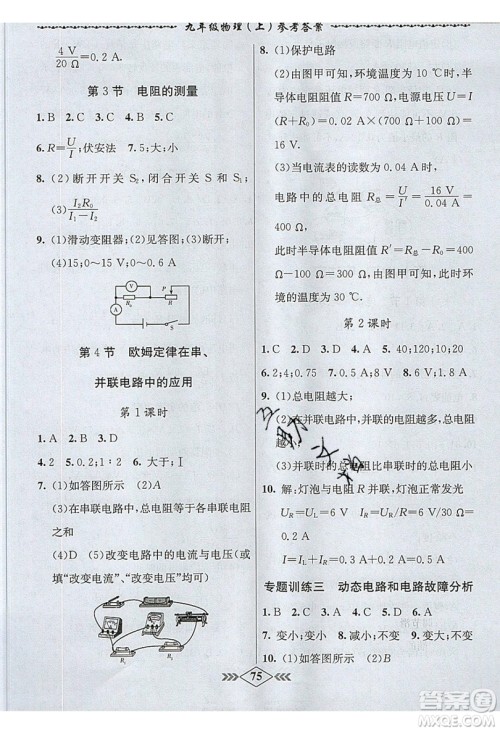 九年级物理(上)参考答案
4 V/20 Ω=0.2 A.
第 3 节 电阻的测量
1. B 2. C 3. C 4. B 5. B
6. R=U/I;伏安法 7. 5;大;小
8. (2)断开开关 S2,闭合开关 S 和 S1;
(3)I1R0/I
9. (1)滑动变阻器;(2)见答图;(3)断开;
(4)15;0～15 V;0～0.6 A
V
A
R0
P
R
S
第 4 节 欧姆定律在串、
并联电路中的应用
第 1 课时
1. A 2. B 3. D
4. 2 5. 0.2;1∶2 6. 大于;Ⅰ
7. (1)如答图所示 (2)B
(3)在串联电路中,总电阻等于各串联电阻
之和
(4)D (5)改变电路中的电流与电压(或
填“改变电流”、“改变电压”亦可)
R1
R2
8. (1)保护电路
(2)由图甲可知,环境温度为 5℃时,半
导体电阻阻值 R=700 Ω,电源电压 U=
I(R+R0)=0.02 A×(700 Ω+100 Ω)=
16 V.
(3)当电流表的读数为 0.04 A 时,
电路中的总电阻 R总=U/I′=16 V/0.04 A=
400 Ω
此时半导体电阻阻值 R′=R总-R0=
400 Ω-100 Ω=300 Ω
由图甲可知,此时环境温度为 20℃.
第 2 课时
1. C 2. D 3. D 4. A 5. 40;120;10
6. 2;4;0.75 7. 2;1.2 8. 25;4
9. (1)总电阻越大;
(2)在并联电路中,并联的电阻越多,总电
阻越小
(3)并联时的总电阻比串联的总电阻小
10. 解:灯泡与电阻 R 并联,灯泡正常发光
UR=UL=U=3 V
IR=UR/R=3 V/15 Ω=0.2 A
IL=I-IR=0.5 A-0.2 A=0.3 A
专题训练三 动态电路和电路故障分析
1. B 2. D 3. A 4. C 5. D 6. B
7. 变小;变小 8. 变大;不变 9. 不变;变小
10. (1)如答图所示 (2)B
75